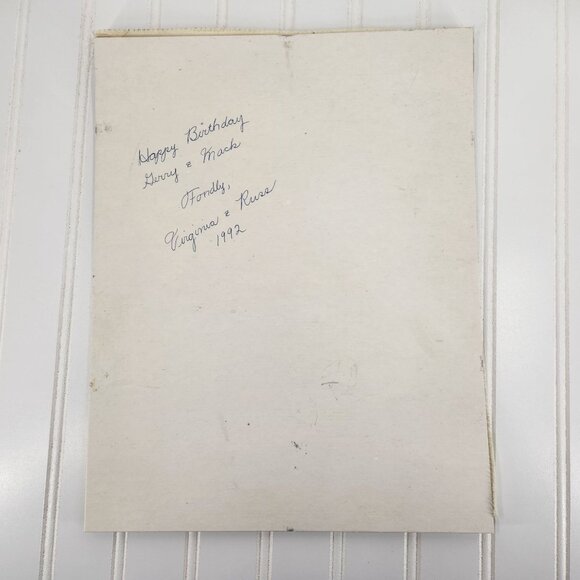 Happy Birthday
Gerry & Mack
Fondly,
Virginia & Russ
1992